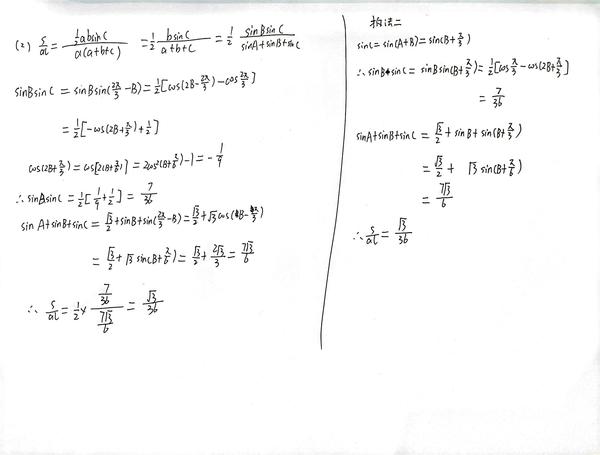 (2) S/al = ½absinC / a(a+b+c) = ½ bsinC / a+b+c = ½ sinBsinC / sinA+sinB+sinC
sinBsinC = sinBsin(2π/3 - B) = ½[cos(2B - 2π/3) - cos 2π/3]
= ½[-cos(2B + π/3) + ½]
cos(2B + π/3) = cos[2(B + π/6)] = 2cos²(B + π/6) - 1 = - 1/9
∴ sinBsinC = ½[1/9 + ½] = 7/36
sinA + sinB + sinC = √3/2 + sinB + sin(2π/3 - B) = √3/2 + √3 cos(B - π/3)
= √3/2 + √3 sin(B + π/6) = √3/2 + 2√3/3 = 7√3/6
∴ S/al = ½ × 7/36 / 7√3/6 = √3/36
法二
sinC = sin(A+B) = sin(B + π/3)
∴ sinB·sinC = sinBsin(B + π/3) = ½[cos π/3 - cos(2B + π/3)]
= 7/36
sinA + sinB + sinC = √3/2 + sinB + sin(B + π/3)
= √3/2 + √3 sin(B + π/6)
= 7√3/6
∴ S/al = √3/36